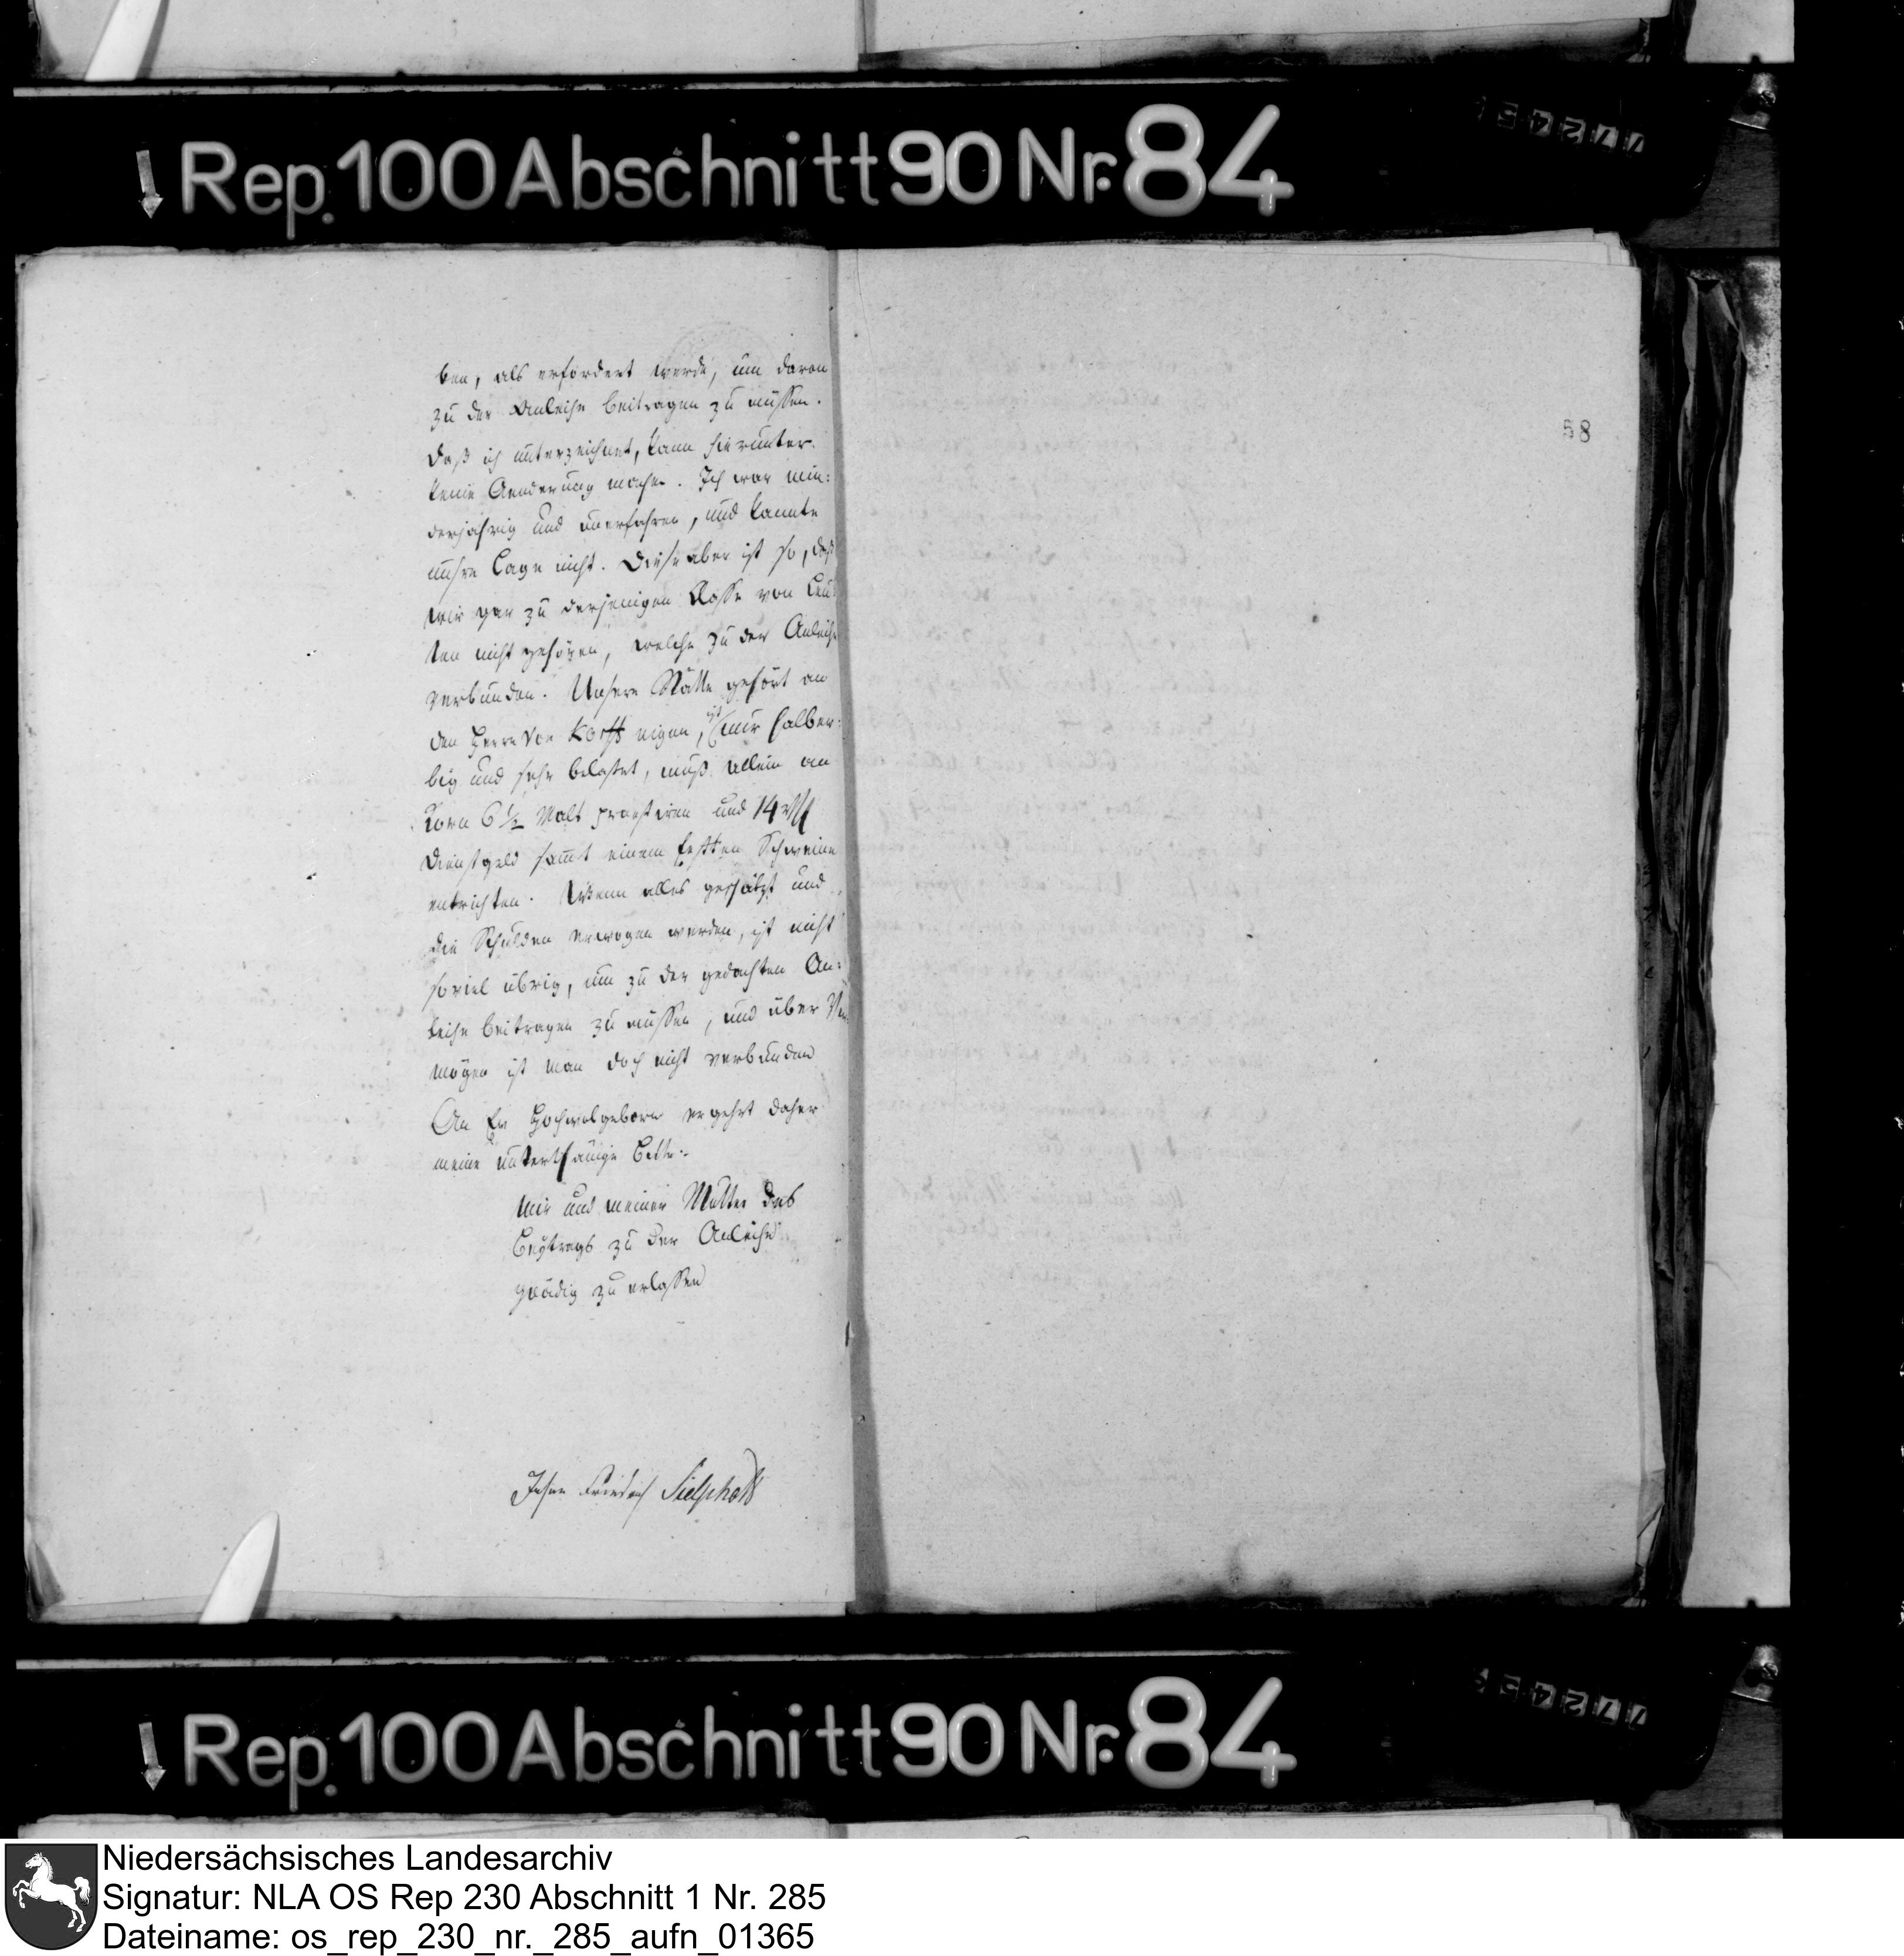 Rep. 100 Abschnitt 90 Nr. 84
ben, als erfordert werde, um davon
zu der Anleihe beitragen zu müssen.
Daß ich unterzeichnet, kann hierunter
keine Aenderung machen. Ich war min-
derjährig und unerfahren, und kannte
unsre Lage nicht. Diese aber ist so, daß
wir gar zu derjenigen Classe von Leu-
ten nicht gehören, welche zu der Anleihe
verbunden. Unsere Stätte gehört an
den Herrn von Korff eigen, ist nur halber-
big und sehr belastet, muß allein an
Korn 6 1/2 Malt praestiren und 14 rtl
Dienstgeld sammt einem fetten Schweine
entrichten. Wenn alles geschätzt und
die Schulden erwogen werden, ist nicht
soviel übrig, um zu der gedachten An-
leihe beitragen zu müssen, und über Ver-
mögen ist man doch nicht verbunden
An Ew Hochwolgeborn ergehet daher
meine unterthänige Bitte:
mir und meiner Mutter des
Beytrags zu der Anleihe
gnädig zu erlassen
Johan Friedrich Sielschott
58
Rep. 100 Abschnitt 90 Nr. 84
Niedersächsisches Landesarchiv
Signatur: NLA OS Rep 230 Abschnitt 1 Nr. 285
Dateiname: os_rep_230_nr._285_aufn_01365